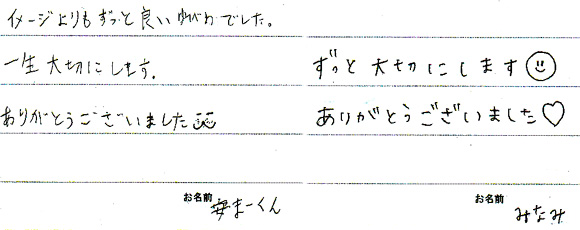 イメージよりもずっと良いゆびわでした。
一生大切にします。
ありがとうございました
お名前 まーくん
ずっと大切にします
ありがとうございました♡
お名前 みなみ